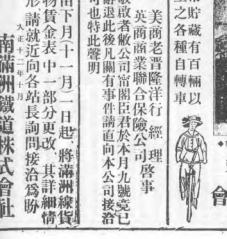 貯藏有百輛以
之各種自轉車
會
美商老晋隆洋行經理啓事
英商商業聯合保險公司
敬啟者敝公司甯閣臣君於本月九號竟已
辭退此後凡關有事件請直向本公司接洽
可也特此聲明
由下月十一月一日起將滿洲線貨
物賃金表中一部分更改其詳細情
形請就近向各站長詢問接洽爲盼
大正十二年十月
南滿洲鐵道株式會社